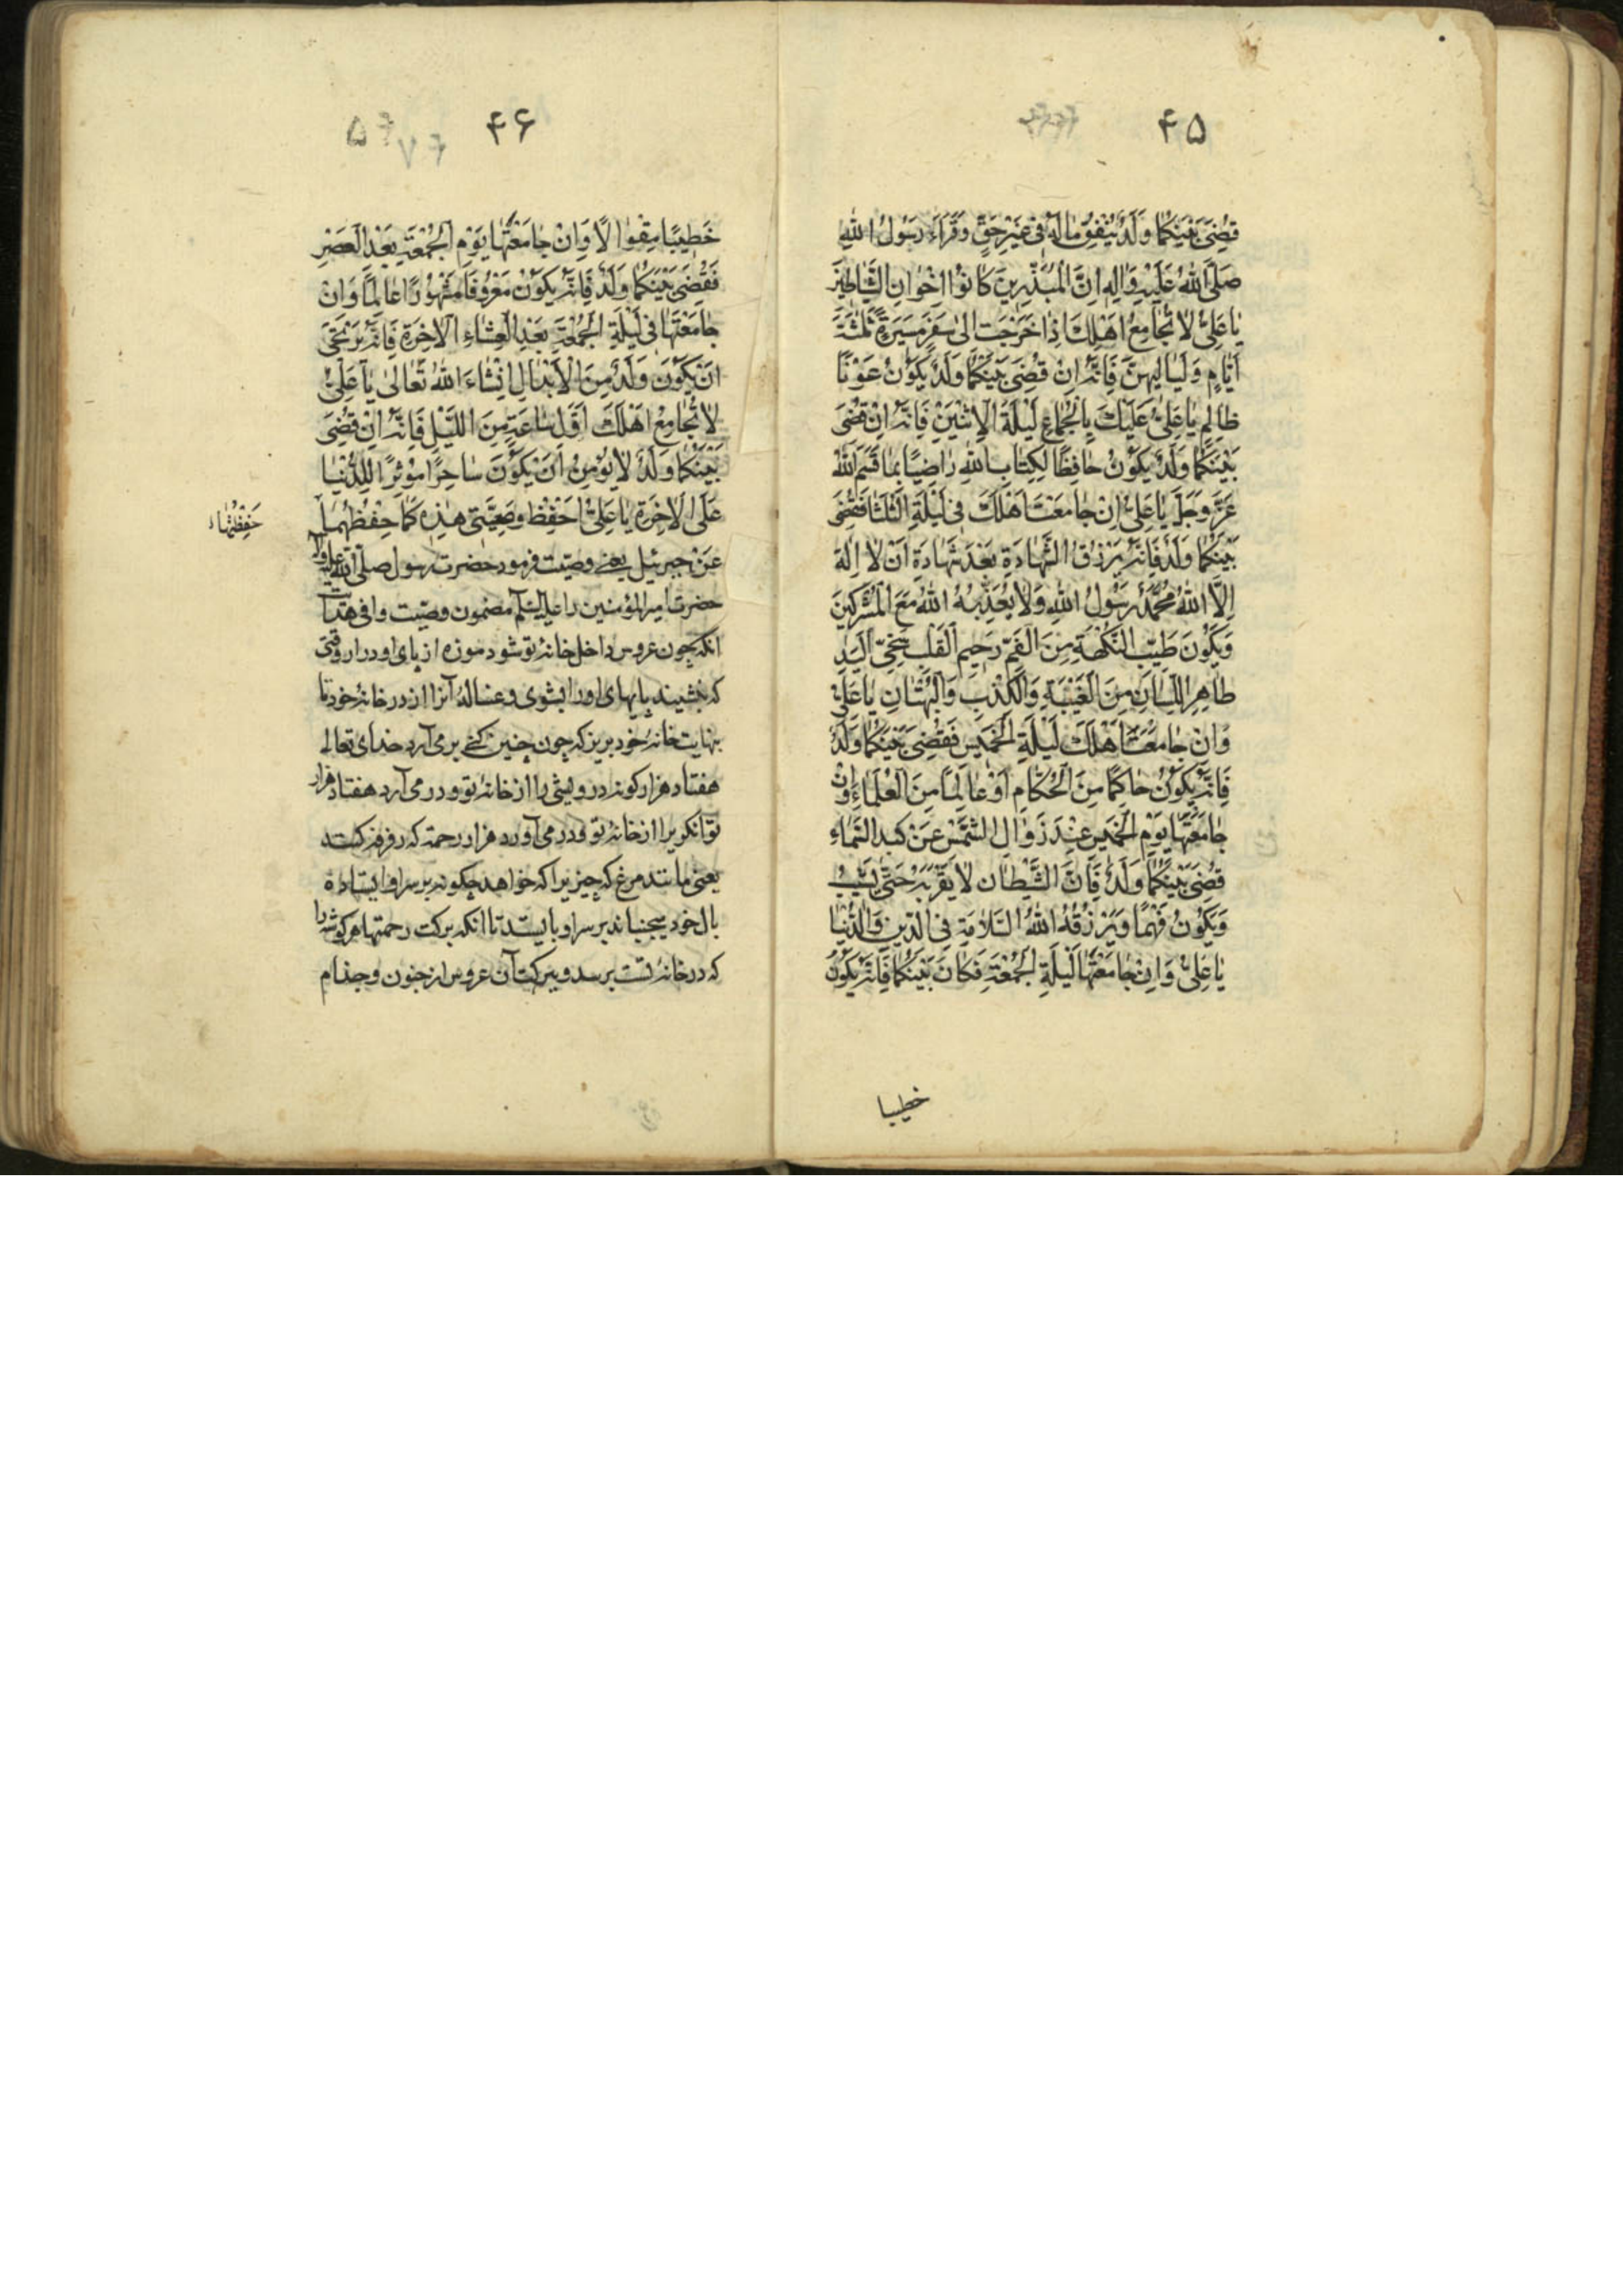 ۴۵
قُضِیَ بَیْنَکُمٰا وَلَدٌ یُنْفِقُ مٰالَهُ فی غَیْرِ حَقٍّ وَ قَرَاَءَ رَسُولُ اللّٰهِ
صَلَّی اللّٰهُ عَلَیْهِ وَاٰلِهِ اِنَّ الْمُبَذِّرِینَ کٰانُوْا اِخْوٰانَ الشَّیٰاطِیْنَ
یٰا عَلِیُّ لاٰ تُجٰامِعْ اَهْلَکَ اِذٰا خَرَجْتَ اِلیٰ سَفَرٍ مَسِیْرَةَ ثَلٰثَةَ
اَیّٰامٍ وَ لَیٰالِیهِنَّ فَاِنَّهُ اِنْ قُضِیَ بَیْنَکُمٰا وَلَدٌ یَکُوْنُ عَوْنًا
ظٰالِمٍ یٰا عَلِیُّ عَلَیْکَ بِالْجُمٰاعِ لَیْلَةَ الْاِثْنَیْنِ فَاِنَّهُ اِنْ قُضِیَ
بَیْنَکُمٰا وَلَدٌ یَکُوْنُ حٰافِظًا لِکِتٰابِ اللّٰهِ رٰاضِیًا بِمٰا قَسَمَ اللّٰهُ
عَزَّ وَ جَلَّ یٰا عَلِیُّ اِنْ جٰامَعْتَ اَهْلَکَ فی لَیْلَةِ الثَّلَثٰا فَقُضِیَ
بَیْنَکُمٰا وَلَدٌ فَاِنَّهُ یَرْزُقُ الشَّهٰادَةِ بَعْدَ شَهٰادَةِ اَنْ لاٰ اِلٰهَ
اِلَّا اللّٰهُ مُحَمَّدٌ رَسُوْلُ اللّٰهِ وَلاٰ یُعَذِّبُهُ اللّٰهُ مَعَ الْمُشْرِکِینَ
وَ یَکُوْنَ طَیِّبَ النَّکْهَةِ مِنَ الْفَمِّ رَحِیمَ الْقَلْبِ سَخِیَّ الْیَدِ
طٰاهِرَ اللِّسٰانِ مِنَ الْغَیْبَةِ وَالْکِذْبِ وَالْبُهْتٰانِ یٰا عَلِیُّ
وَ اِنْ جٰامَعْتَ اَهْلَکَ لَیْلَةَ الْخَمِیْسِ فَقُضِیَ بَیْنَکُمٰا وَلَدٌ
فَاِنَّهُ یَکُوْنُ حٰاکِمًا مِنَ الْحُکّٰامِ اَوْ عٰالِمًا مِنَ الْعُلَمٰاءِ وَاِنْ
جٰامَعْتَهٰا یَوْمَ الْخَمِیسِ عِنْدَ زَوٰالِ الشَّمْسِ عَنْ کبد السَّمٰاءِ
قُضِیَ بَیْنَکُمٰا وَلَدٌ فَاِنَّ الشَّیْطٰانَ لاٰ یَقْرَبُهُ حَتّٰی یَشِیْبُ
وَ یَکُوْنُ فَهْمًا وَ یَرْزُقُهُ اللّٰهُ السَّلاٰمَةِ فِی الدّینِ وَالدُّنْیٰا
یٰا عَلِیُّ وَ اِنْ جٰامَعْتَهٰا لَیْلَةِ الْجُمُعَةِ فَکٰانَ بَیْنَکُمٰا فَاِنَّهُ یَکُوْنُ
خطیبا
۴۶
خَطِیْبًا مِقْوٰالًا وَ اِنْ جٰامَعْتَهٰا یَوْمَ الْجُمْعَةِ بَعْدَ الْعَصْرِ
فَقُضِیَ بَیْنَکُمٰا وَلَدٌ فَاِنَّهُ یَکُوْنُ مَعْرُوْفًا مَشْهُوْرًا عٰالِمًا وَ اِنْ
جٰامَعْتَهٰا فی لَیْلَةِ الْجُمُعَةِ بَعْدَ الْعِشٰاءِ الْاٰخِرَةِ فَاِنَّهُ یَرْتَجیٰ
اَنْ یَکُوْنَ وَلَدٌ مِنَ الْاَبْدٰالِ اِنْشٰاءَ اللّٰهُ تَعٰالیٰ یٰا عَلِیُّ
لاٰ تُجٰامِعْ اَهْلَکَ اَوَّلَ سٰاعَةٍ مِنَ اللَّیْلِ فَاِنَّهُ اِنْ قُضِیَ
بَیْنَکُمٰا وَلَدٌ لاٰ یُؤْمِنُ اَنْ یَکُوْنَ سٰاحِرًا مُوْثِرًا لِلدُّنْیٰا
عَلَی الْاٰخِرَةِ یٰا عَلِیُّ اِحْفِظْ وَصِیَّتی هٰذِهِ کَمٰا حِفْظْتُهٰا
حَفِظْتُهٰا
عَنْ جبرئیل یعنی وصیّت فرمود حضرت رسول صلّی اللّٰه علیه وآله
حضرت امیر المؤمنین را علیه السّلم مضمون وصیّت وافی هدایت
انکه چون عروس داخل خانهٔ تو شود موزه از پای او در ار وقتی
که بنشیند پایهای او را بشوی و غسالهٔ آنرا از در خانهٔ خود تا
نهایت خانهٔ خود بریز که چون چنین کنی بر می آرد خدای تعالی
هفتاد هزار کونه درویشی را از خانهٔ تو و در می آرد هفتاد هزار
توانکریرا از خانهٔ تو و در می آورد هزار رحمة که رفرفه کنند
یعنی مانند مرغ که چیزیرا که خواهد چکونه بر سر او ایستاده
بال خود میجنباند بر سر او بایستد تا انکه برکت رحمتها هر کوشه را
که در خانهٔ تست برسد و ببرکت آن عروس از جنون و جذام